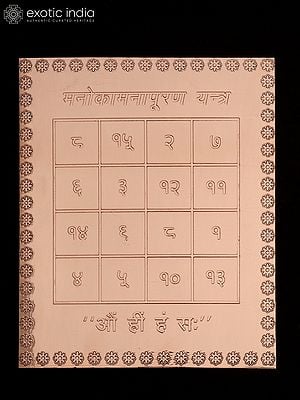 exotic india
मनोकामनापूरण यन्त्र
८ १५ २ ७
६ ३ १२ ११
१४ ६ ८ १
४ ५ १० १३
"औं ह्रीं हं सः"